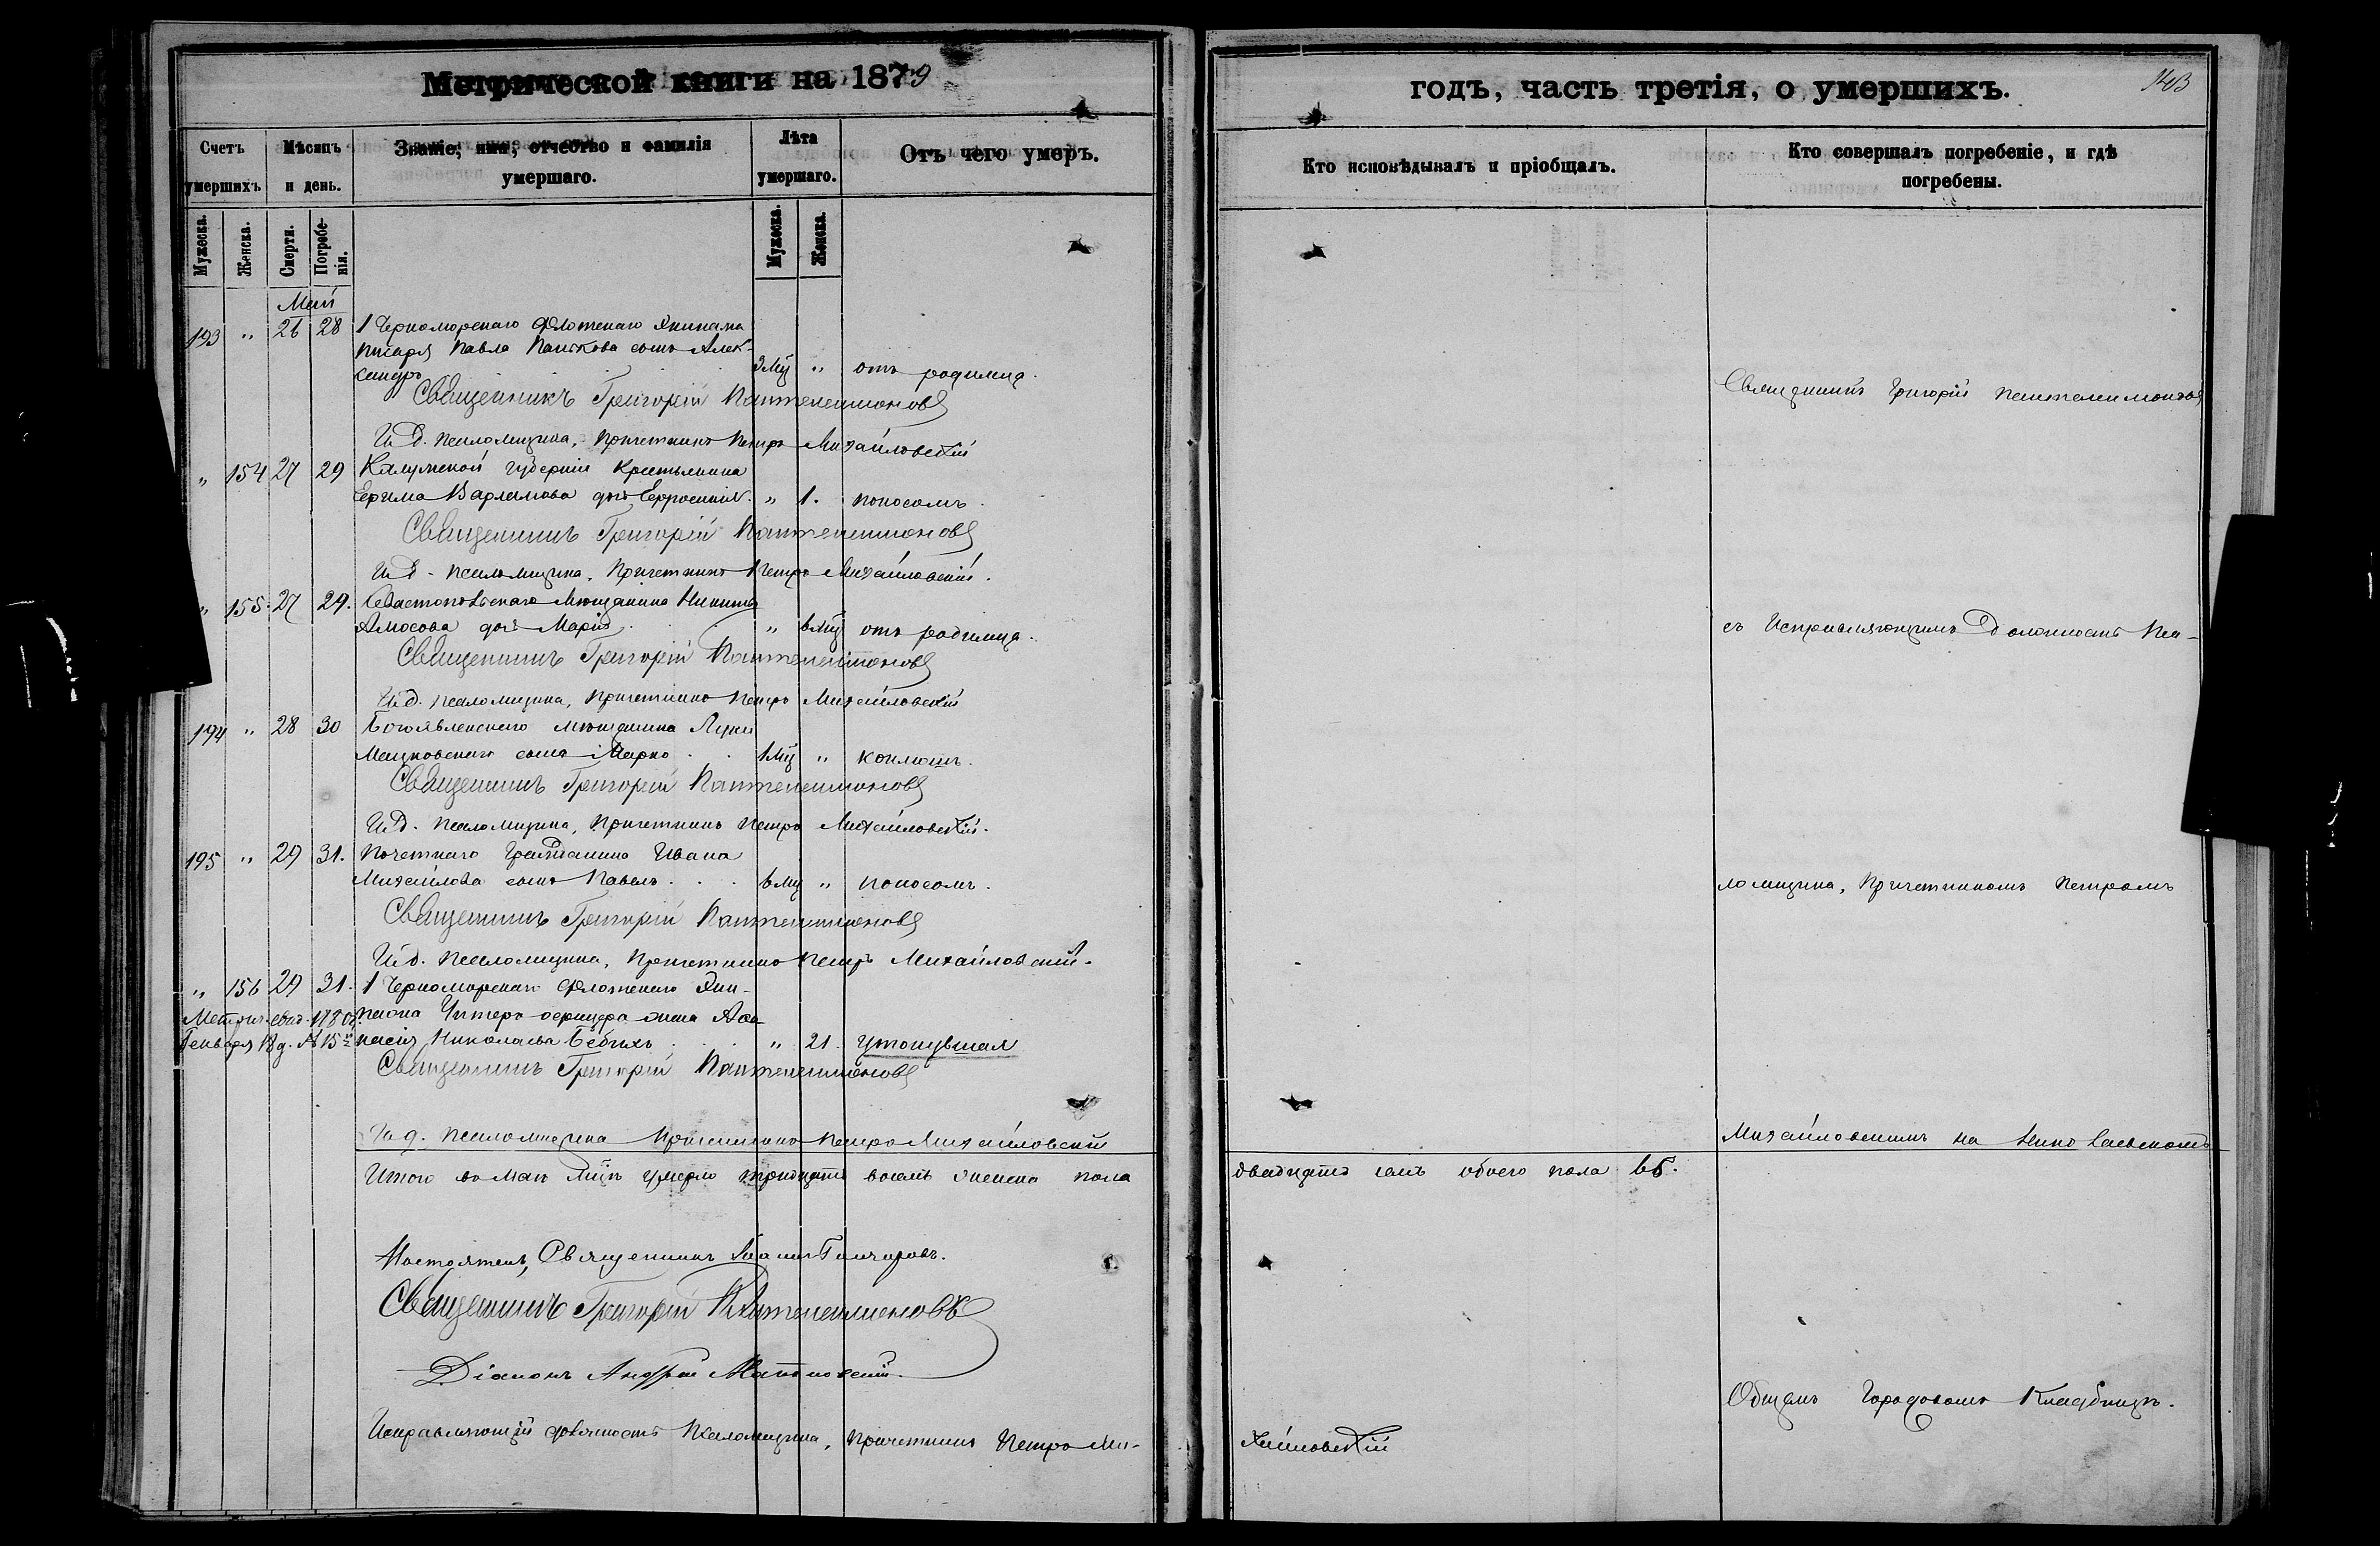 Метрической книги на 1879
годъ, часть третія, о умершихъ.
143
Счетъ умершихъ.
Мѣсяцъ и день.
Званіе, имя, отчество и фамилія умершаго.
Лѣта умершаго.
Отъ чего умеръ.
Кто исповѣдывалъ и пріобщалъ.
Кто совершалъ погребеніе, и гдѣ погребены.
Мужеска.
Женска.
Смерти.
Погребенія.
Мужеска.
Женска.
Май
193 " 26 28 1 Черноморскаго Флотскаго Экипажа
писаря Павла сынъ Алек-
сандръ " отъ родимца.
Священникъ Григорій Пантелеимоновъ
И. д. псаломщика, Причетникъ Петръ Михайловскій
" 154 27 29 Калужской губерніи Крестьянина
Ефима Варламова дочь Ефросинія " 1. поносомъ.
Священникъ Григорій Пантелеимоновъ
И. д. псаломщика, Причетникъ Петръ Михайловскій.
" 155. 27 29. Севастопольскаго Мѣщанина Никиты
Амосова дочь Марія " 6 мц отъ родимца.
Священникъ Григорій Пантелеимоновъ
И. д. псаломщика, Причетникъ Петръ Михайловскій
194 " 28 30 Богоявленскаго мѣщанина Луки
сынъ Марко 1 мц " коклюшъ.
Священникъ Григорій Пантелеимоновъ
И. д. псаломщика, Причетникъ Петръ Михайловскій.
195 " 29 31. Почетнаго Гражданина Ивана
Михайлова сынъ Павелъ 6 мц " поносомъ.
Священникъ Григорій Пантелеимоновъ
И. д. псаломщика, Причетникъ Петръ Михайловскій.
" 156 29 31. 1 Черноморскаго Флотскаго Эки-
пажа Унтеръ офицера жена
Николаева " 21. утонувшая
Священникъ Григорій Пантелеимоновъ
И. д. псаломщика Причетникъ Петръ Михайловскій
Итого въ Маѣ мцѣ умерло тридцать восемь женска пола
двадцать семь обоего пола 65.
Настоятель, Священникъ
Священникъ Григорій Пантелеимоновъ
Діаконъ Андрей
Исправляющій должность Псаломщика, причетникъ Петръ Ми-
хайловскій
Священникъ Григорій Пантелеимоновъ
съ Исправляющимъ Должность Пса-
ломщика, Причетникомъ Петромъ
Михайловскимъ на Николаевскомъ
Общемъ Городовомъ Кладбищѣ.